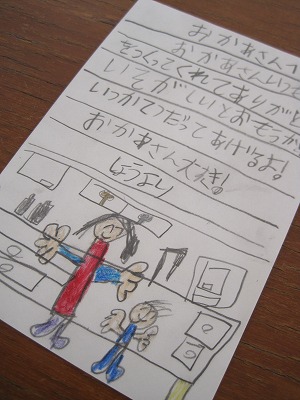 おかあさんへ
おかあさんいつも
をつくってくれてありがと
いそがしいとおもうが
いつかてつだってあげるよ!
おかあさん大すき!
しょうより